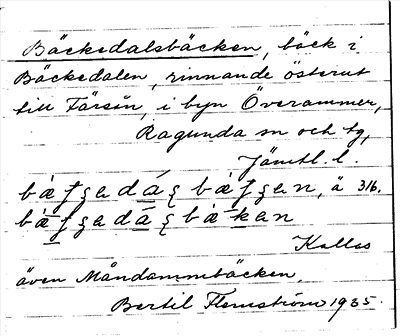 Bäckedalsbäcken, bäck i
Bäckedalen, rinnande österut
till Färsån, i byn Överammer,
Ragunda sn och tg,
Jämtl. l.
å 316.
Kallas
även Måndammbäcken.
Bertil Flemström 1935.